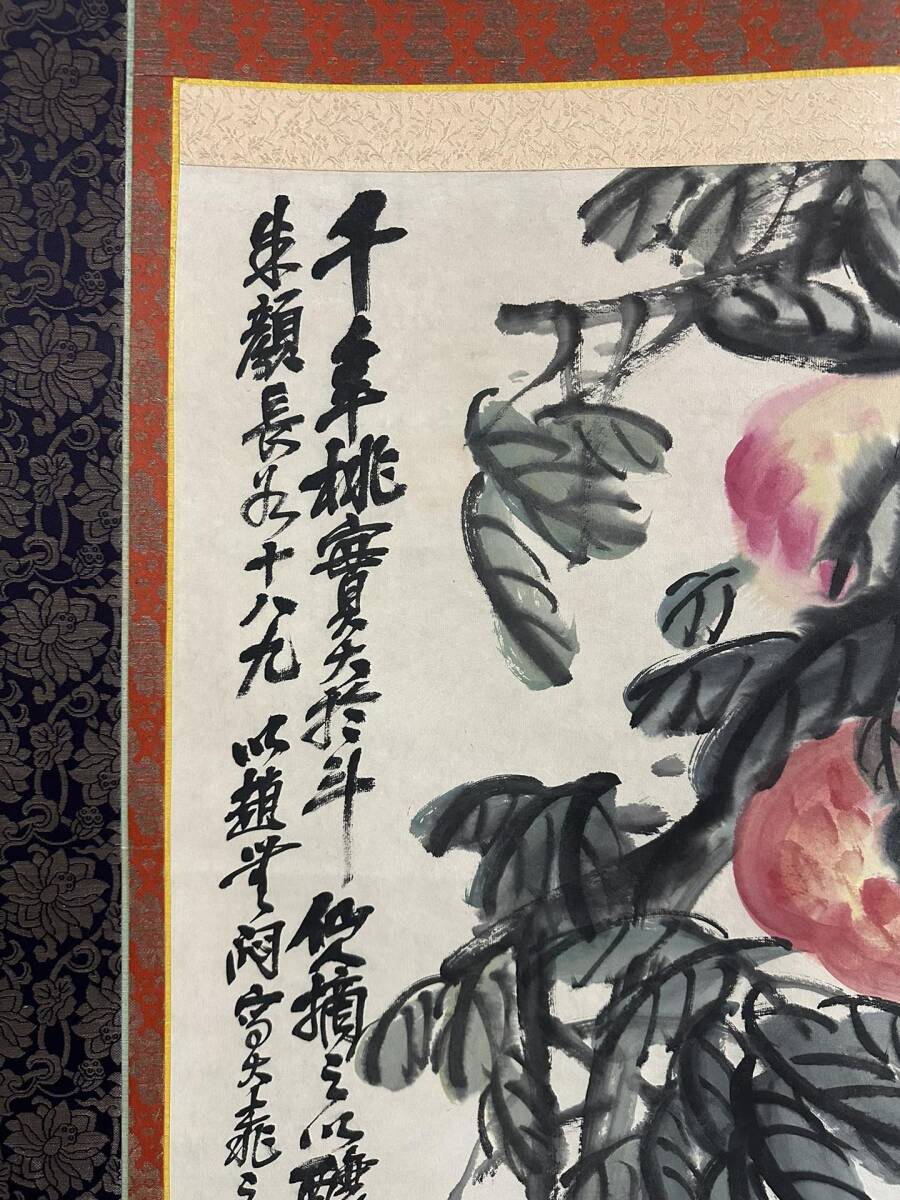 千年桃實大於斗仙人摘之以釀
朱顏長如十八九以趙无悶寫大意之